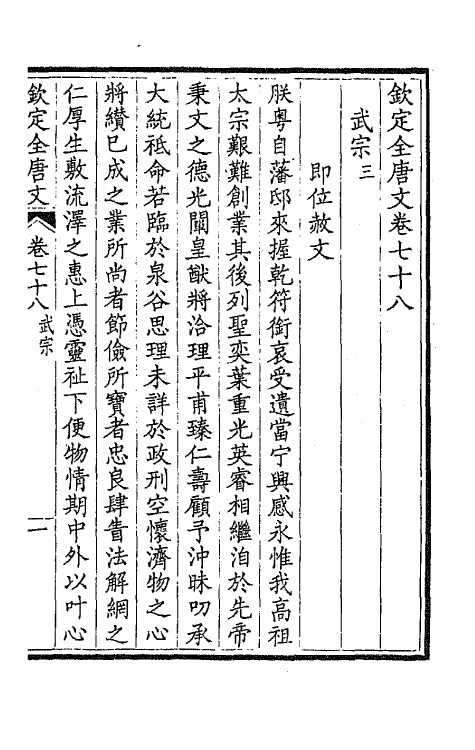 欽定全唐文卷七十八
武宗三
即位赦文
朕粵自藩邸來握乾符銜哀受遺當宁興感永惟我高祖
太宗艱難創業其後列聖奕葉重光英睿相繼洎於先帝
秉文之德光闡皇猷將洽理平甫臻仁壽顧予沖昧叨承
大統祗命若臨於泉谷思理未詳於政刑空懷濟物之心
將纉已成之業所尚者節儉所寶者忠良肆眚法解網之
仁厚生敷流澤之惠上憑靈祉下便物情期中外以叶心
欽定全唐文 卷七十八 武宗 一